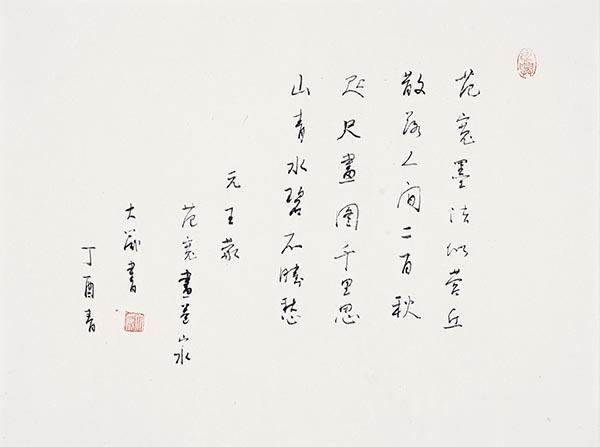 范寬墨法似营丘
散落人间二百秋
咫尺畫圖千里思
山青水碧不勝愁
元王蒙
范寬畫卷山水
大箴書
丁酉